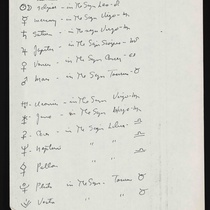 in the Sign Leo - ♌
☿ mercury - in the Sign Virgo - ♍
♄ Saturn - in the Sign Virgo - ♍
♃ Jupiter - in the Sign Scorpio - ♏
♀ Venus - in the Sign
♂ Mars - in the Sign Taurus ♉
♅ Uranus - in the Sign Virgo - ♍
Juno - in the Sign Virgo - ♍
⚳ Ceres - in the Sign Libra ♎
♆ Neptune " " ♎
⚴ Pallas " " ♎
Pluto in the Sign - Taurus ♉
Vesta " " ♉